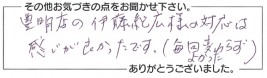 その他お気づきの点をお聞かせ下さい。
豊明店の伊藤紀広様の対応は
感じが良かったです。(毎回変わらず
よかった)
ありがとうございました。